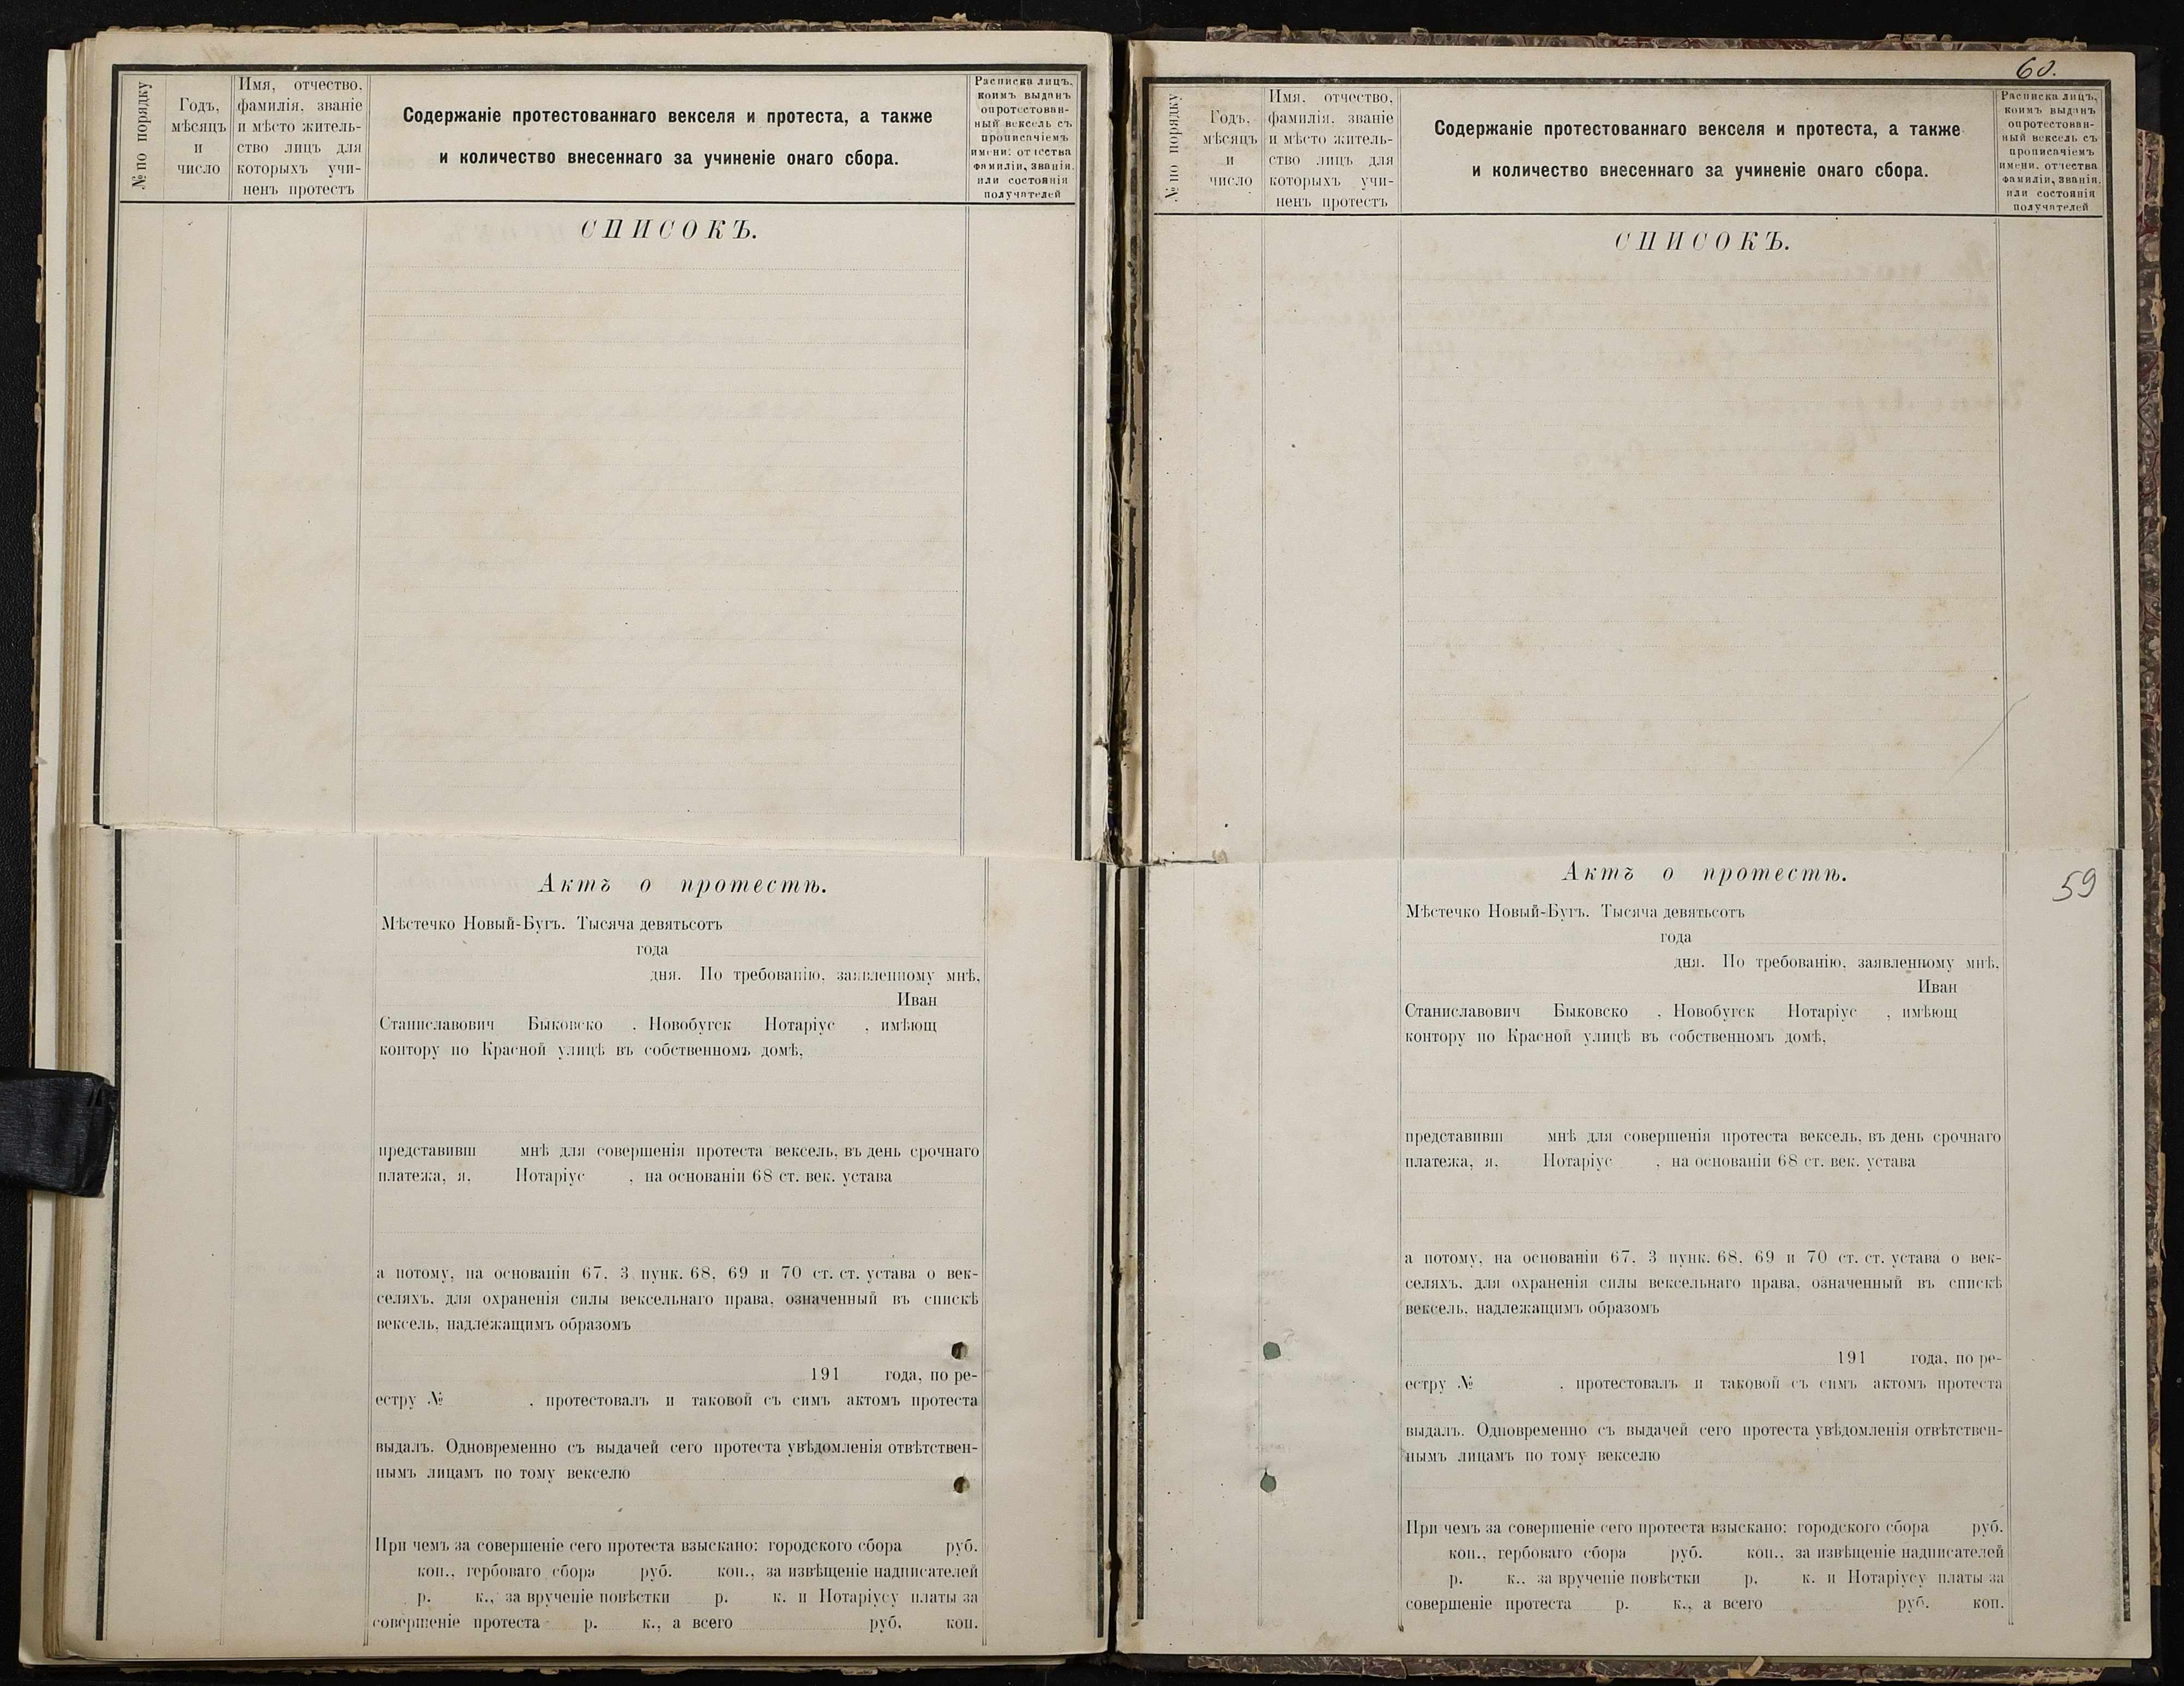 № по порядку
Годъ,
мѣсяцъ
и
число
Имя, отчество,
фамилія, званіе
и мѣсто житель-
ство лицъ для
которыхъ учи-
ненъ протестъ
Содержаніе протестованнаго векселя и протеста, а также
и количество внесеннаго за учиненіе онаго сбора.
Расписка лицъ,
коимъ выданъ
опротестован-
ный вексель съ
прописаніемъ
имени, отчества
фамиліи, званія,
или состоянія
получателей
СПИСОКЪ.
Актъ о протестѣ.
Мѣстечко Новый-Бугъ. Тысяча девятьсотъ
года
дня. По требованію, заявленному мнѣ,
Иван
Станиславович Быковско , Новобугск Нотаріус , имѣющ
контору по Красной улицѣ въ собственномъ домѣ,
представивш мнѣ для совершенія протеста вексель, въ день срочнаго
платежа, я, Нотаріус , на основаніи 68 ст. век. устава
а потому, на основаніи 67, 3 пунк. 68, 69 и 70 ст. ст. устава о век-
селяхъ, для охраненія силы вексельнаго права, означенный въ спискѣ
вексель, надлежащимъ образомъ
191 года, по ре-
естру № , протестовалъ и таковой съ симъ актомъ протеста
выдалъ. Одновременно съ выдачей сего протеста увѣдомленія отвѣтствен-
нымъ лицамъ по тому векселю
При чемъ за совершеніе сего протеста взыскано: городского сбора руб.
коп., гербоваго сбора руб. коп., за извѣщеніе надписателей
р. к., за врученіе повѣстки р. к. и Нотаріусу платы за
совершеніе протеста р. к., а всего руб. коп.
60.
№ по порядку
Годъ,
мѣсяцъ
и
число
Имя, отчество,
фамилія, званіе
и мѣсто житель-
ство лицъ для
которыхъ учи-
ненъ протестъ
Содержаніе протестованнаго векселя и протеста, а также
и количество внесеннаго за учиненіе онаго сбора.
Расписка лицъ,
коимъ выданъ
опротестован-
ный вексель съ
прописаніемъ
имени, отчества
фамиліи, званія,
или состоянія
получателей
СПИСОКЪ.
Актъ о протестѣ.
59
Мѣстечко Новый-Бугъ. Тысяча девятьсотъ
года
дня. По требованію, заявленному мнѣ,
Иван
Станиславович Быковско , Новобугск Нотаріус , имѣющ
контору по Красной улицѣ въ собственномъ домѣ,
представивш мнѣ для совершенія протеста вексель, въ день срочнаго
платежа, я, Нотаріус , на основаніи 68 ст. век. устава
а потому, на основаніи 67, 3 пунк. 68, 69 и 70 ст. ст. устава о век-
селяхъ, для охраненія силы вексельнаго права, означенный въ спискѣ
вексель, надлежащимъ образомъ
191 года, по ре-
естру № , протестовалъ и таковой съ симъ актомъ протеста
выдалъ. Одновременно съ выдачей сего протеста увѣдомленія отвѣтствен-
нымъ лицамъ по тому векселю
При чемъ за совершеніе сего протеста взыскано: городского сбора руб.
коп., гербоваго сбора руб. коп., за извѣщеніе надписателей
р. к., за врученіе повѣстки р. к. и Нотаріусу платы за
совершеніе протеста р. к., а всего руб. коп.